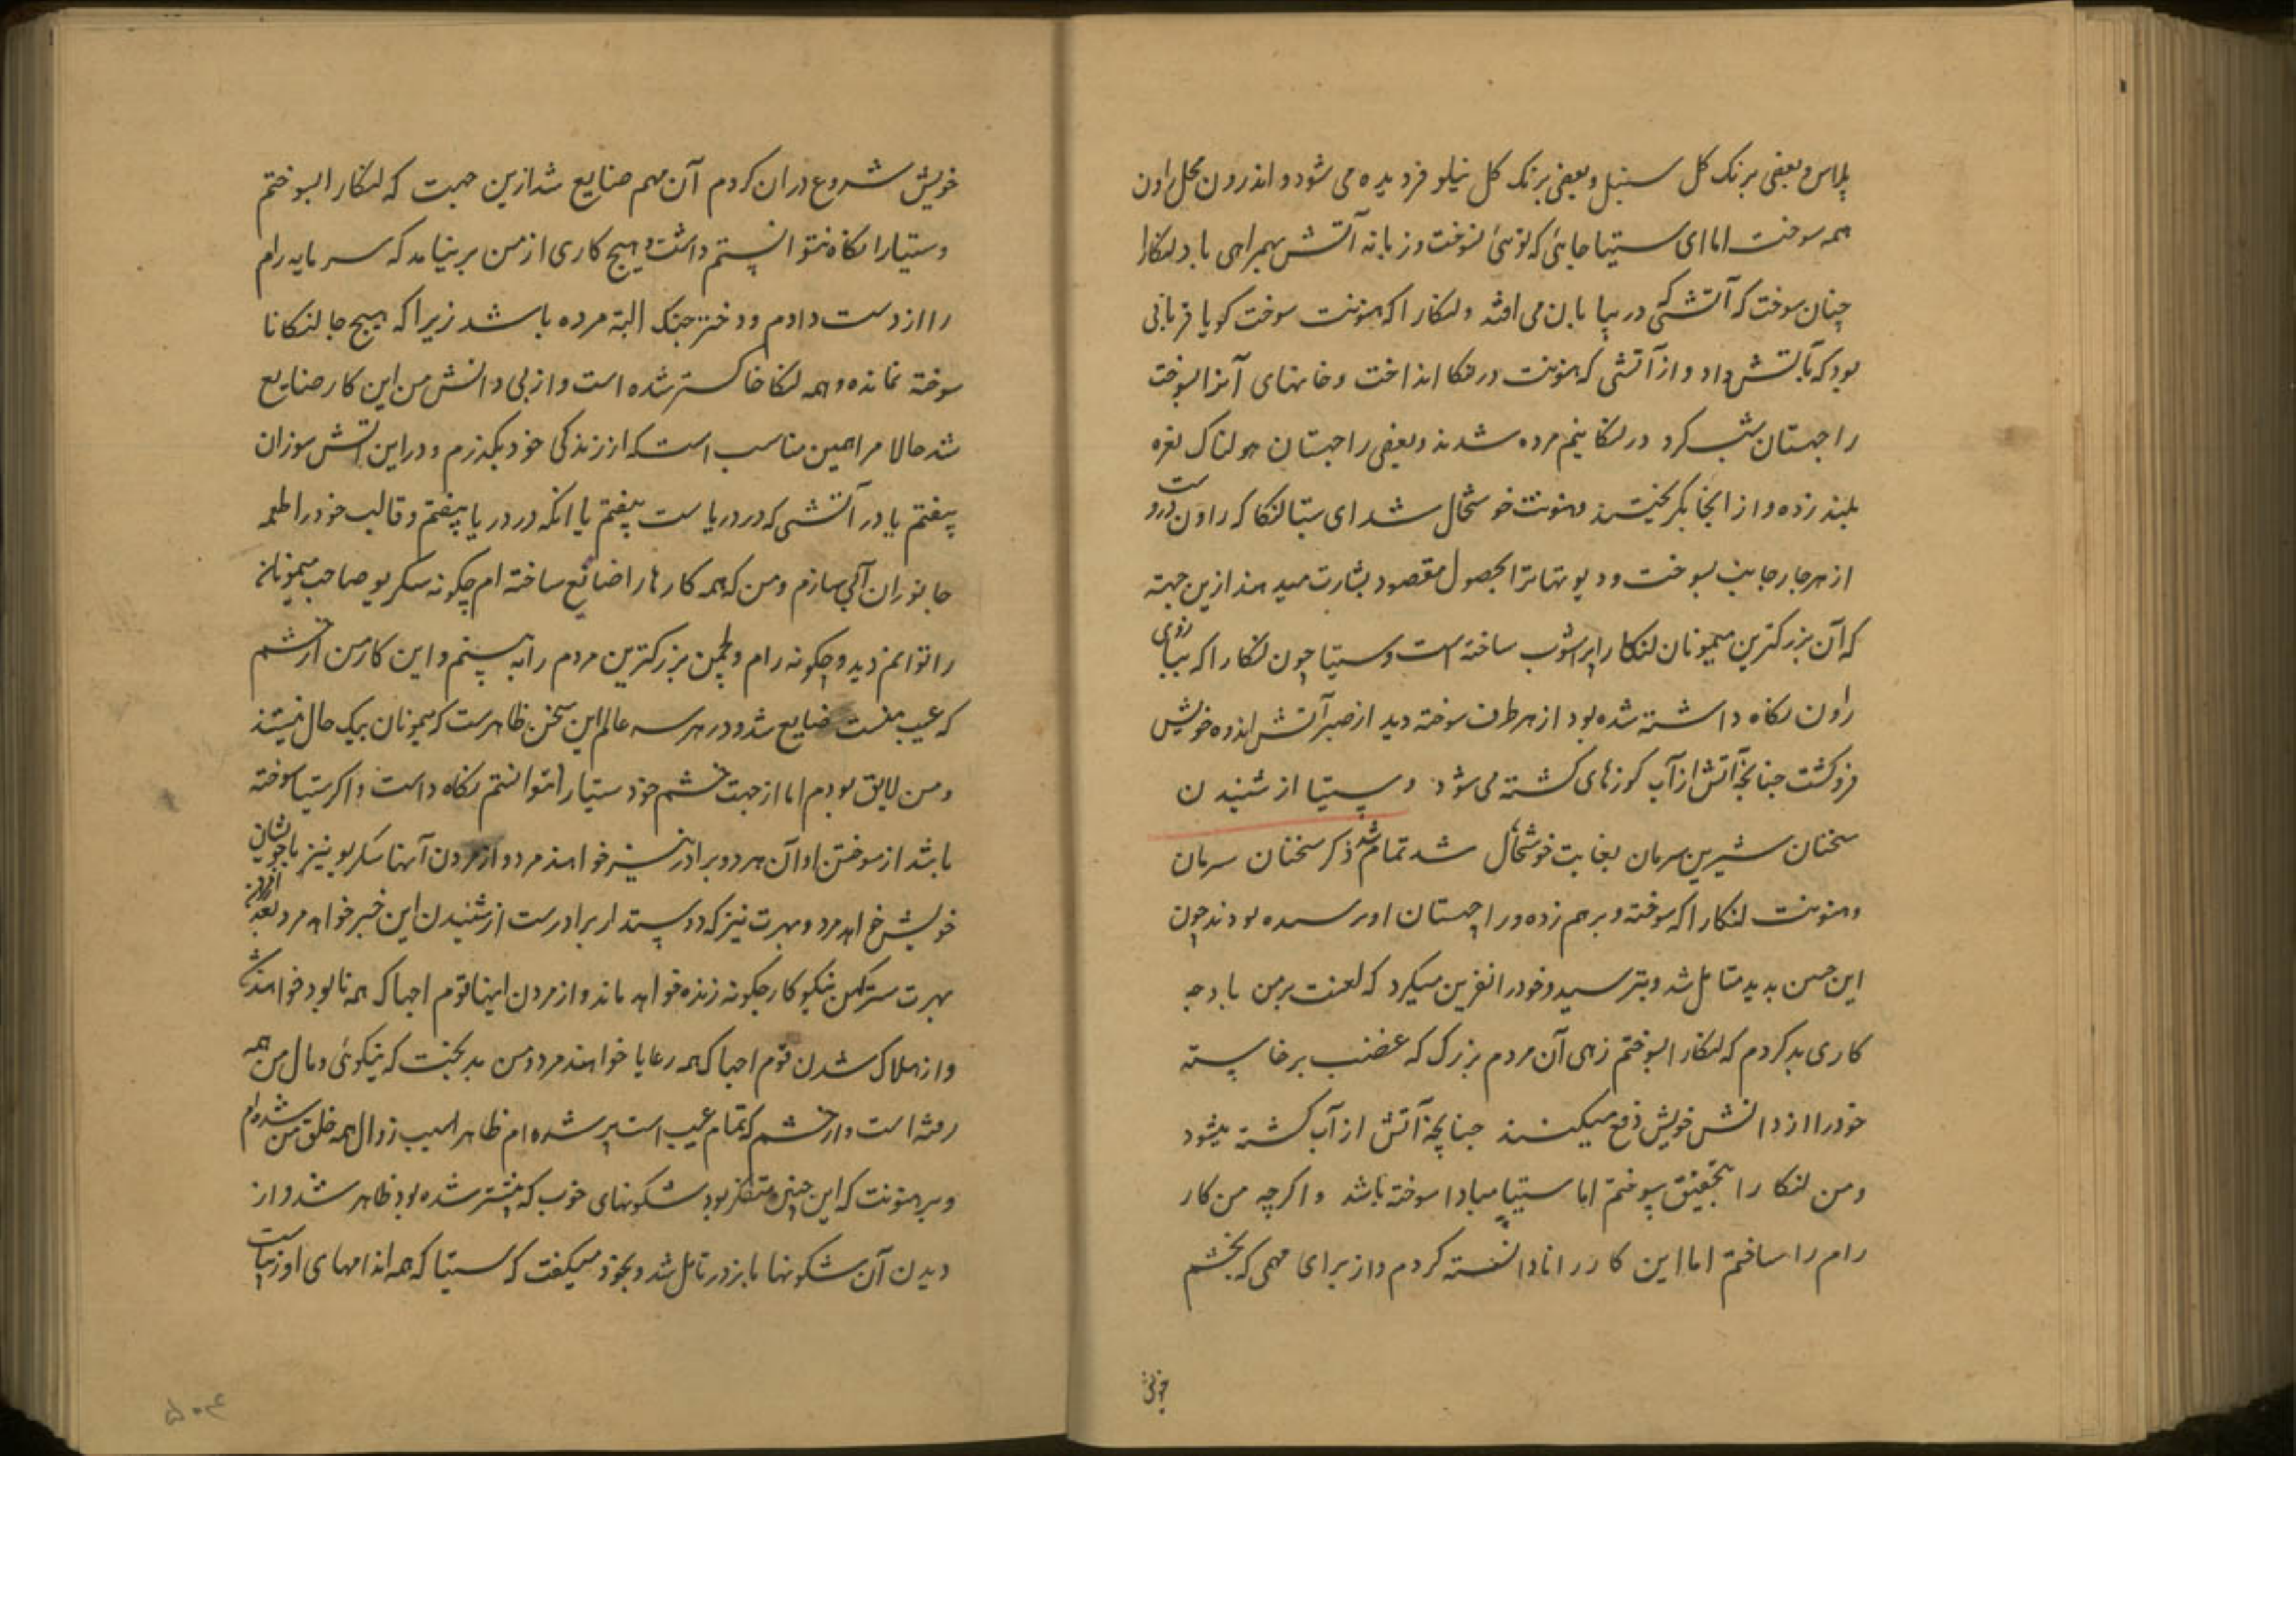 پلاس و بعضی برنک کل سنبل و بعضی برنک کل نیلوفر دیده می شود و اندرون محل راون
همه سوخت اما ای ستیا جایئ که توئی نسوخت و زبانه آتش بهمراهی باد لنکارا
چنان سوخت که آتشی که در بیابان می افتد و لنکارا که هنونت سوخت کویا قربانی
بود که بآتش داد و از آتشی که هنونت در لنکا انداخت و خانهای آنرا بسوخت
راجهستان شب کرد در لنکا نیم مرده شدند و بعضی راجهستان هولناک نعره
بلند زده و از انجا بگریختند و هنونت خوشحال شد ای ستیا لنکا که راون دروست
از هر چار جانب بسوخت و دیوتها ترا بحصول مقصود بشارت میدهند ازین جهته
که آن بزرکترین میمونان لنکا را پرآشوب ساخته است و ستیا چون لنکا را که ببازوی
راون نکاه داشته شده بود از هر طرف سوخته دید از صبر آتش اندوه خویش
فروکشت چنانچه آتش از آب کوزهای کشته می شود و سیتیا از شنیدن
سخنان شیرین سرمان بغایت خوشحال شد تمام شد ذکر سخنان سرمان
و هنونت لنکارا که سوخته و برهم زده و راجهستان او ترسیده بودند چون
این چنین بدید متامل شد و بترسید و خود را نفرین میکرد که لعنت بر من باد چه
کاری بد کردم که لنکارا بسوختم زهی آن مردم بزرک که غضب برخاسته
خود را از دانش خویش دفع میکنند چنانچه آتش از آب کشته میشود
و من لنکا را بتحقیق بسوختم اما ستیا مبادا سوخته باشد و اکرچه من کار
رام را ساختم اما این کار را نادانسته کردم و از برای مهمی که بخشم
خویش
خویش شروع در ان کردم آن مهم ضایع شد ازین جهت که لنکارا بسوختم
و ستیارا نکاه نتوانستم داشت و هیچ کاری از من بر نیامد که سرمایه رام
را از دست دادم و دختر جنک البته مرده باشد زیرا که هیچ جا لنکا نا
سوخته نمانده و همه لنکا خاکستر شده است و از بی دانش من این کار ضایع
شد حالا مرا همین مناسب است که از زندکی خود بکذرم و در این آتش سوزان
بیفتم یا در آتشی که در دریاست بیفتم یا انکه در دریا بیفتم و قالب خود را طعمه
جانوران آبی سازم و من که همه کارها را ضائع ساخته ام چکونه سکریو صاحب میمونان
را توانم دید و چکونه رام و لچمن بزرکترین مردم را به بینم و این کار من از خشم
که عیب منست ضایع شد و در هر سه عالم این سخن ظاهرست که میمونان بیک حال نیستند
و من لایق بودم اما از جهت خشم خود ستیا را نتوانستم نکاه داشت و اکر ستیا سوخته
باشد از سوختن او آن هر دو برادر نیز خواهند مرد و از مردن آنها سکریو نیز با خویشان
خویش خواهد مرد و بهرت نیز که دوستدار برادرست از شنیدن این خبر خواهد مرد و بعد از مردن
بهرت سترکهن نیکوکار چکونه زنده خواهد ماند و از مردن اینها قوم اجهاک همه نابود خواهند شد
و از هلاک شدن قوم اجهاک همه رعایا خواهند مرد و من بدبخت که نیکوئی و مال من همه
رفته است و از خشم که تمام عیب است پر شده ام ظاهرا سبب زوال همه خلق من شده ام
و بر هنونت که این چنین متفکر بود شکونهای خوب که پیشتر شده بود ظاهر شد و از
دیدن آن شکونها باز در تامل شد و بخود میکفت که ستیا که همه اندامهای او زیباست